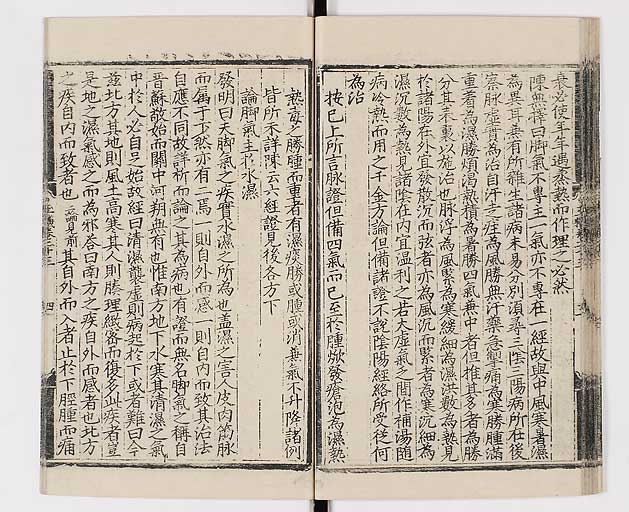 衰必使年年遇蒸熱而作理之必然
陳無擇曰脚氣不專主一氣亦不專在一經故與中風寒暑濕
為異耳兼有所雜生諸病未易分別須尋三陰三陽病所在後
察脉虛實為治自汗之走為風勝無汗攣急掣痛為寒勝腫滿
重著為濕勝煩渴熱積為暑勝四氣兼中者但推其多者為勝
分其表裏以施治也脉浮為風緊為寒緩細為濕洪數為熱見
於諸陽在外宜發散沉而弦者亦為風沉而緊者為寒沉細為
濕沉數為熱見諸陰在內宜溫利之若大虛氣之間作補湯隨
病冷熱而用之千金方論但備諸證不說陰陽經絡所受從何
為治
按已上所言脉證但備四氣而已至於腫焮發瘡泡為濕熱
熱毒之勝腫而重者有濕痰勝或腫或消無氣不升降諸例
皆所未詳陳云六經證見後各方下
論脚氣主於水濕
發明曰夫脚氣之疾實水濕之所為也盖濕之害人皮肉筋脉
而属于下然亦有二焉一則自外而感一則自內而致其治法
自應不同故詳析而論之其為病也有證而無名脚氣之稱自
晋蘇敬始而關中河朔無有也惟南方地下水寒其清濕之氣
中於人必自足始故經曰清濕襲虛則病起於下或者難曰今
茲北方其地則風土高寒其人則腠理緻密而復多此疾者豈
是地之濕氣感之而為邪荅曰南方之疾自外而感者也北方
之疾自內而致者也論見前其自外而入者止於下脛腫而痛
四